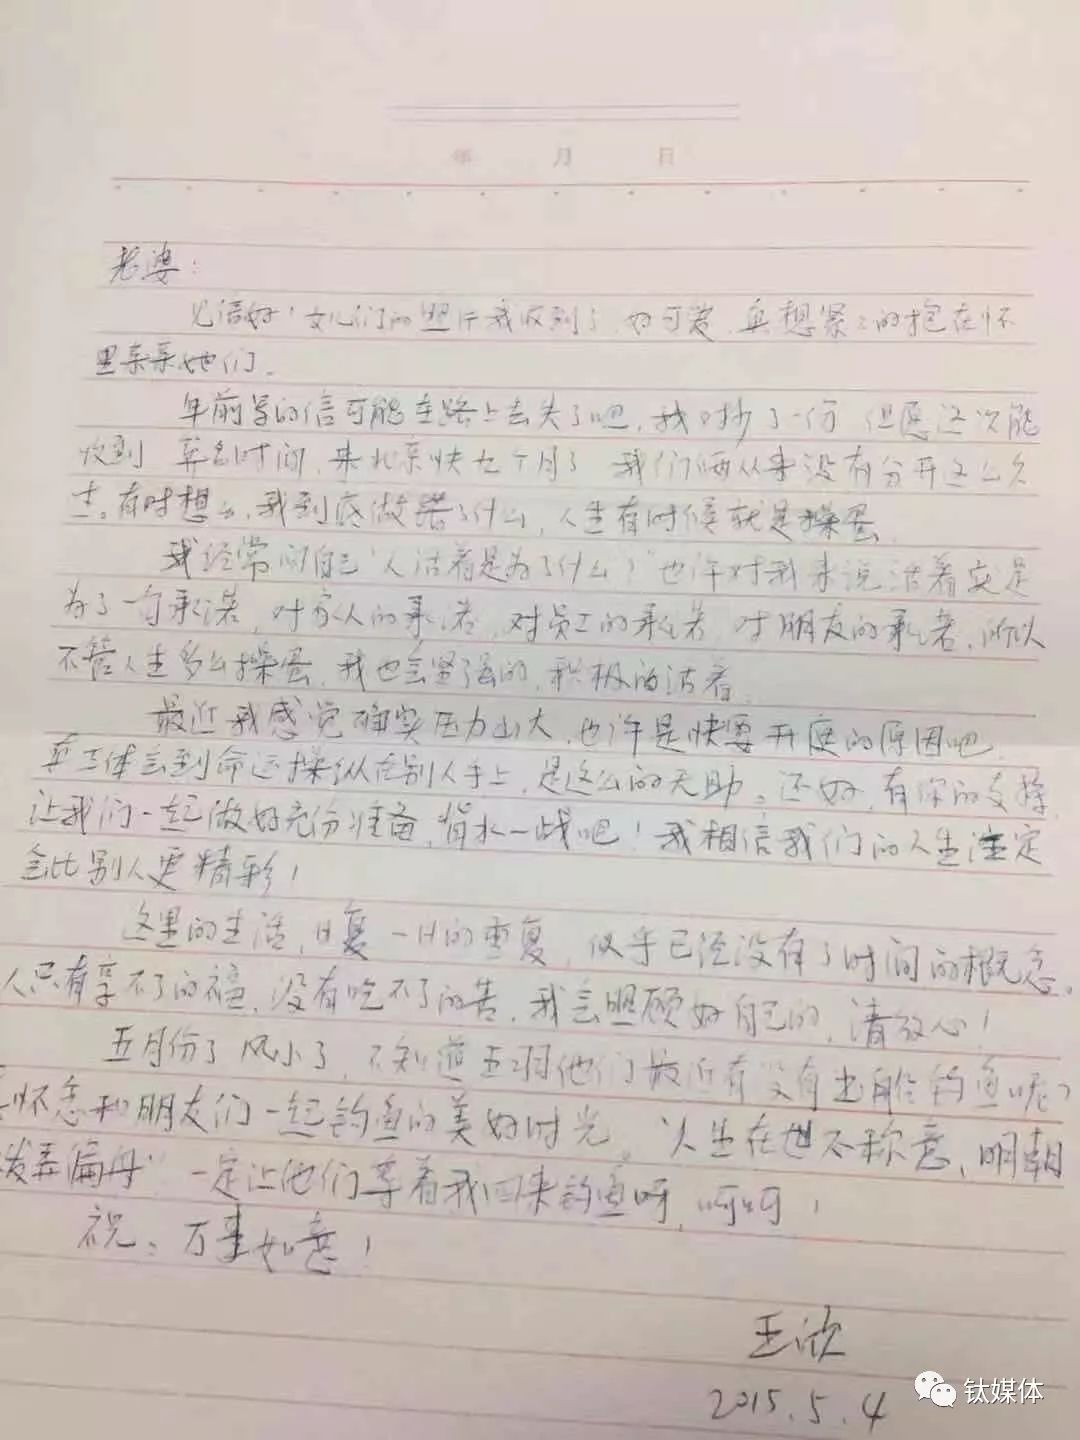 年 月 日
老婆：
见信好！女儿们的照片我收到了，好可爱，真想紧紧的抱在怀
里亲亲她们。
年前写的信可能在路上丢失了吧，我又抄了一份，但愿这次能
收到。算起时间，来北京快九个月了，我们俩从来没有分开这么久
过。有时想想，我到底做错了什么，人生有时候就是操蛋。
我经常问自己“人活着是为了什么？”也许对我来说活着或是
为了一句承诺，对家人的承诺，对员工的承诺，对朋友的承诺，所以
不管人生多么操蛋，我也会坚强的，积极的活着。
最近我感觉确实压力山大，也许是快要开庭的原因吧。
真正体会到命运操纵在别人手上，是这么的无助。还好，有你的支持，
让我们一起做好充份准备，背水一战吧！我相信我们的人生注定
会比别人更精彩！
这里的生活，日复一日的重复，似乎已经没有了时间的概念。
人只有享不了的福，没有吃不了的苦，我会照顾好自己的，请放心！
五月份了，风小了，不知道 他们最近有没有出船钓鱼呢？
怀念和朋友们一起钓鱼的美好时光。“人生在世不称意，明朝
弄扁舟”一定让他们等着我回来钓鱼呀，呵呵！
祝：万事如意！
王欣
2015.5.4
钛媒体